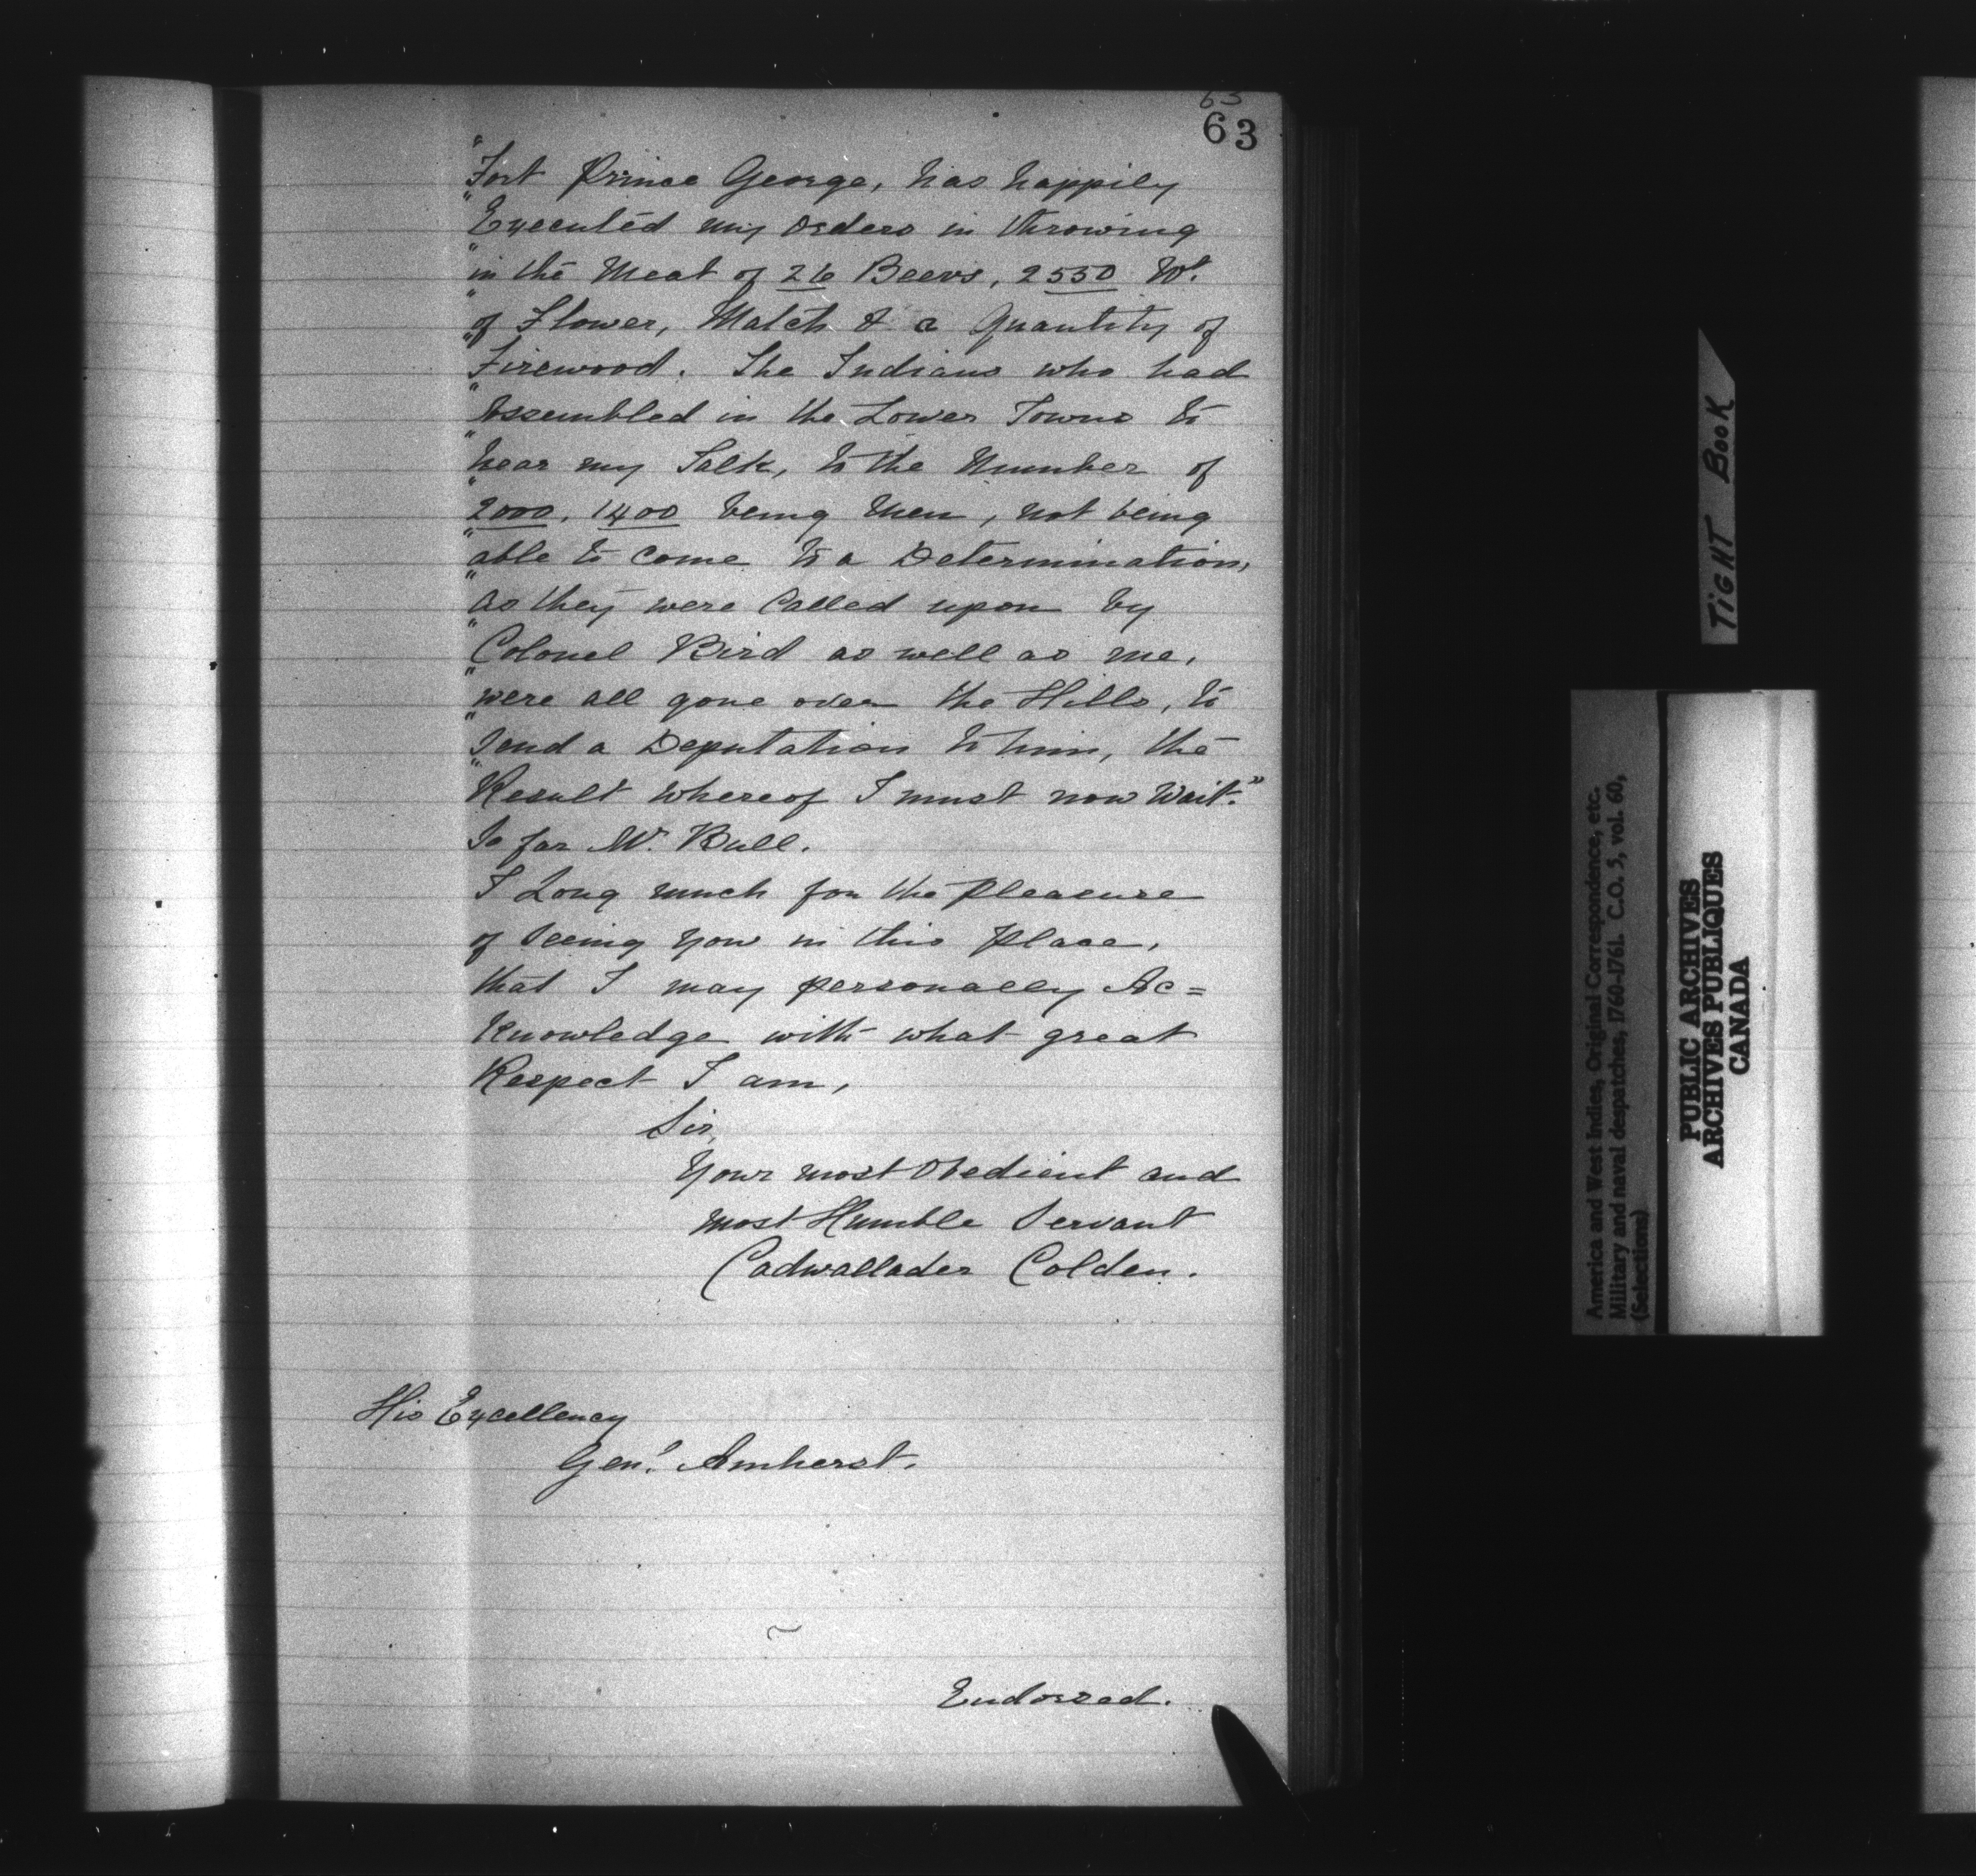 63
63
"Fort Prince George, has happily
"Executed my orders in throwing
"in the Meat of 26 Beevs, 2550 Wt.
"of Flower, Match & a Quantity of
"Firewood. The Indians who had
"Assembled in the Lower Towns to
"hear my Talk, to the Number of
"2000, 1400 being Men, not being
"able to come to a Determination,
"as they were Called upon by
"Colonel Bird as well as me,
"were all gone over the Hills, to
"Send a Deputation to him, the
"Result whereof I must now Wait."
So far Mr. Bull.
I Long much for the Pleasure
of Seeing You in this Place,
that I may personally Ac=
knowledge with what great
Respect I am,
Sir,
Your most Obedient and
most Humble Servant
Cadwallader Colden.
His Excellency
Genl. Amherst.
Endorsed.
TIGHT BOOK
America and West Indies, Original Correspondence, etc.
Military and naval despatches, 1760-1761. C.O. 5, vol. 60,
(Selections)
PUBLIC ARCHIVES
ARCHIVES PUBLIQUES
CANADA